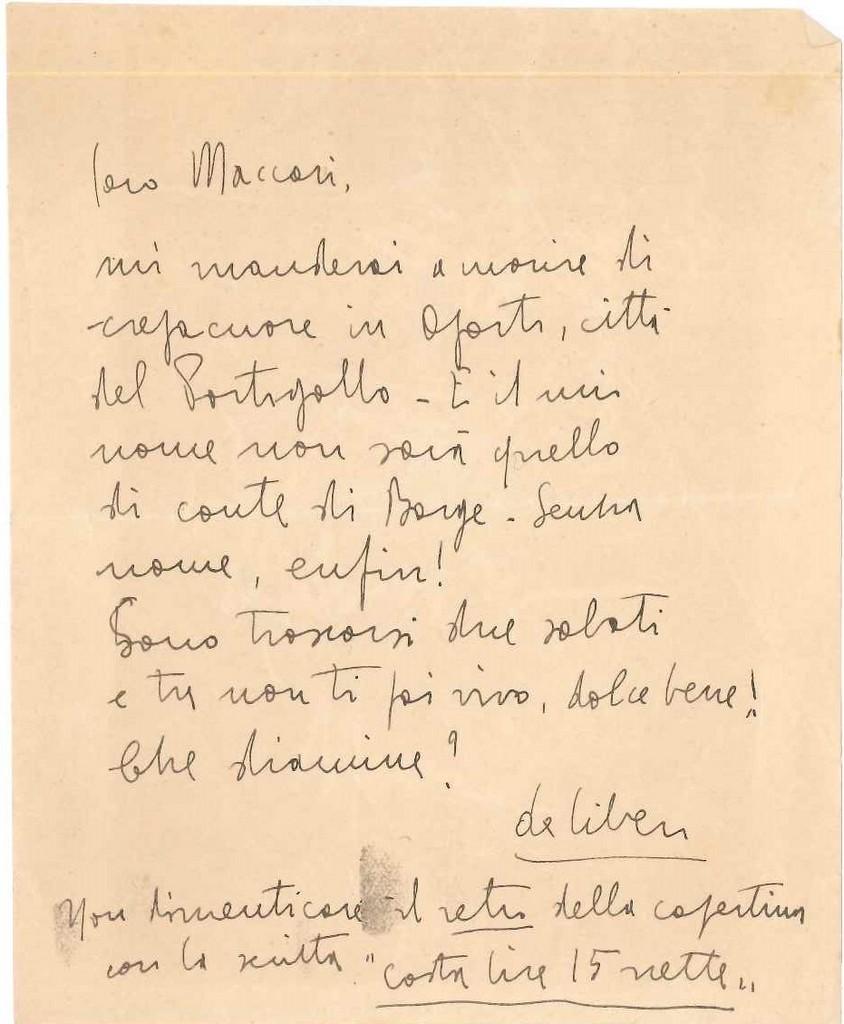 Caro Maccari,
mi manderai a morire di
crepacuore in Oporto, città
del Portogallo - E il mio
nome non sarà quello
di conte di - Senza
nome, enfin!
Sono trascorsi due sabati
e tu non ti fai vivo, dolce bene!
Che diamine?
de Libero
Non dimenticare il retro della copertina
con la scritta "costa lire 15 nette"